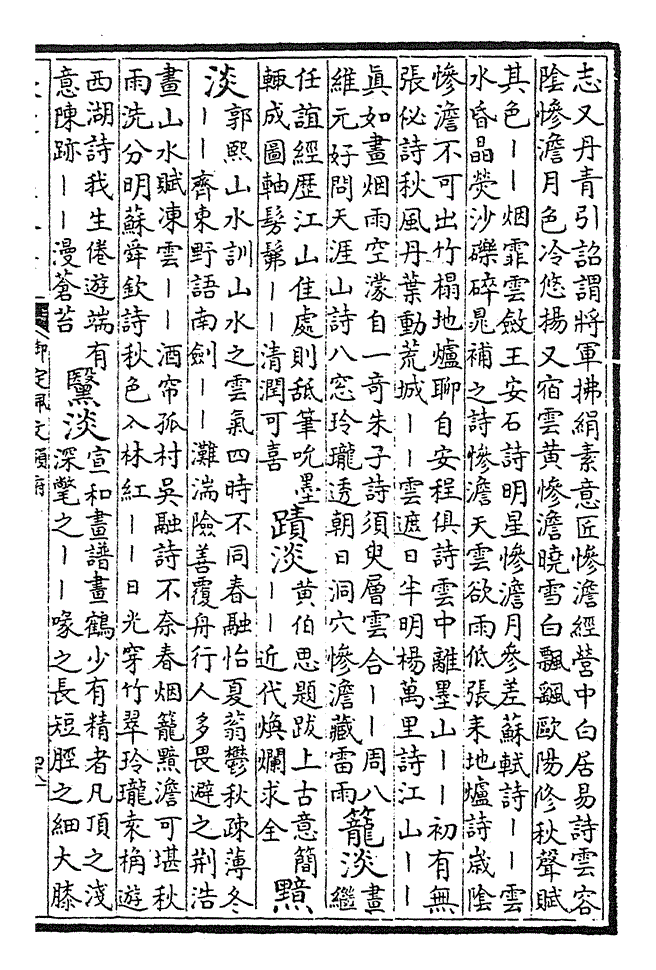 志又丹青引詔謂將軍拂絹素意匠慘澹經營中白居易詩雲容
陰慘澹月色冷悠揚又宿雲黃慘澹曉雪白飄颻歐陽修秋聲賦
其色――烟霏雲斂王安石詩明星慘澹月參差蘇軾詩――雲
水昏晶熒沙礫碎晁補之詩慘澹天雲欲雨低張耒地爐詩歲陰
慘澹不可出竹榻地爐聊自安程俱詩雲中離墨山――初有無
張佖詩秋風丹葉動荒城――雲遮日半明楊萬里詩江山――
眞如畫烟雨空濛自一奇朱子詩須臾層雲合――周八
維元好問天涯山詩八窓玲瓏透朝日洞穴慘澹藏雷雨
籠淡
畫繼
任誼經歷江山佳處則舐筆吮墨
輒成圖軸髣髴――清潤可喜
蹟淡
黃伯思題跋上古意簡
――近代煥爛求全
黯淡
郭熙山水訓山水之雲氣四時不同春融怡夏蓊鬱秋疎薄冬
――齊東野語南劍――灘湍險善覆舟行人多畏避之荆浩
畫山水賦凍雲――酒帘孤村吳融詩不奈春烟籠黯澹可堪秋
雨洗分明蘇舜欽詩秋色入林紅――日光穿竹翠玲瓏袁桷遊
西湖詩我生倦遊端有
意陳跡――漫蒼苔
黳淡
宣和畫譜畫鶴少有精者凡頂之淺
深氅之――喙之長短脛之細大膝
御定佩文韻府